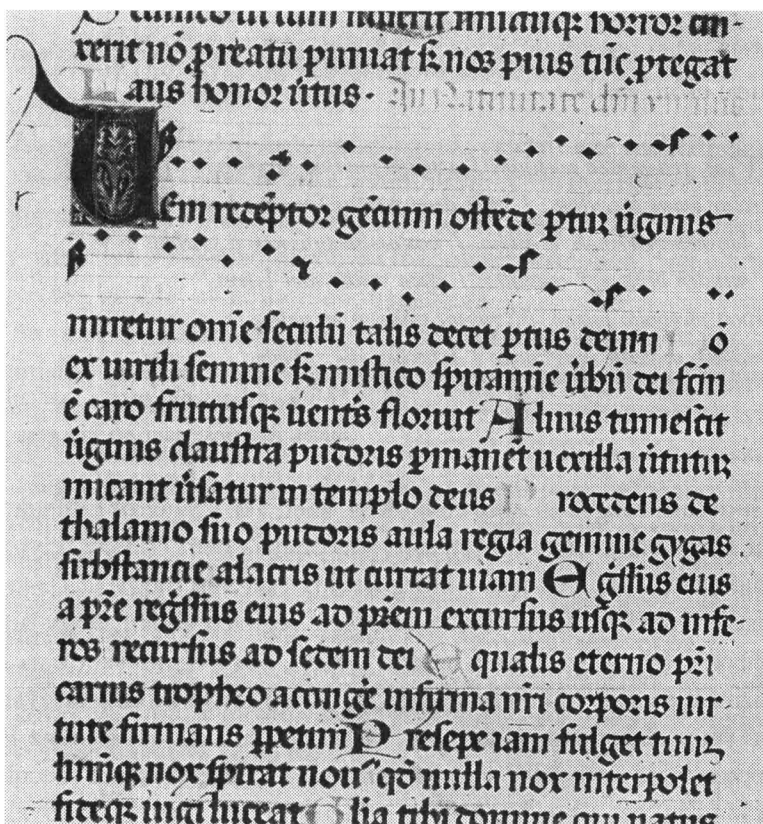 ut cum horror cin-
xerit nõ p reatu puniat s nos pius tũc ptegat
Laus honor ũtus·
Uem receptor gẽcium ostẽde ptũ ũginis
miretur omẽ seculũ talis decet ptus deum Nõ
ex uirili semine s mistico spiramĩe ũbũ dei fcm
ẽ caro fructusq uent's floruit Aluus tumescit
ũginis claustra pudoris pmanẽt uexilla ũtutũ
micant ũsatur in templo deus Procedens de
thalamo suo pudoris aula regia gemine gygas
substancie alacris ut currat uiam Egssus eius
a pre regssus eius ad prem excursus usq ad infe-
ros recursus ad sedem dei Equalis eterno pri
carnis tropheo accinge infirma nri corporis uir-
tute firmans ppetim Presepe iam fulget tuũ
lumq nox spirat nouũ qd nulla nox interpolet
fideq iugi luceat Glia tibi domine qui natus